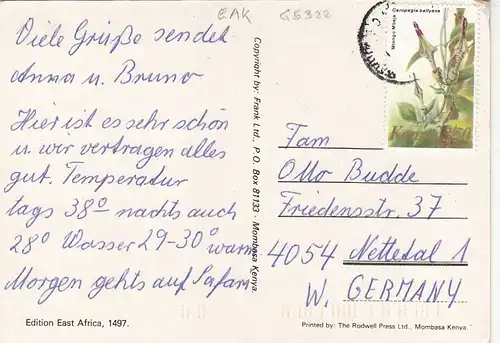 EAK G5322
Viele Grüße sendet
Anna u. Bruno
Hier ist es sehr schön
u. wir vertragen alles
gut. Temperatur
tags 38° nachts auch
28° Wasser 29-30° warm
Morgen gehts auf Safari
Edition East Africa, 1497.
Copyright by: Frank Ltd., P.O. Box 81133 - Mombasa Kenya.
Ceropegia ballyana
Fam
Otto Budde
Friedensstr. 37
4054 Nettetal 1
W. GERMANY
Printed by: The Rodwell Press Ltd., Mombasa Kenya.